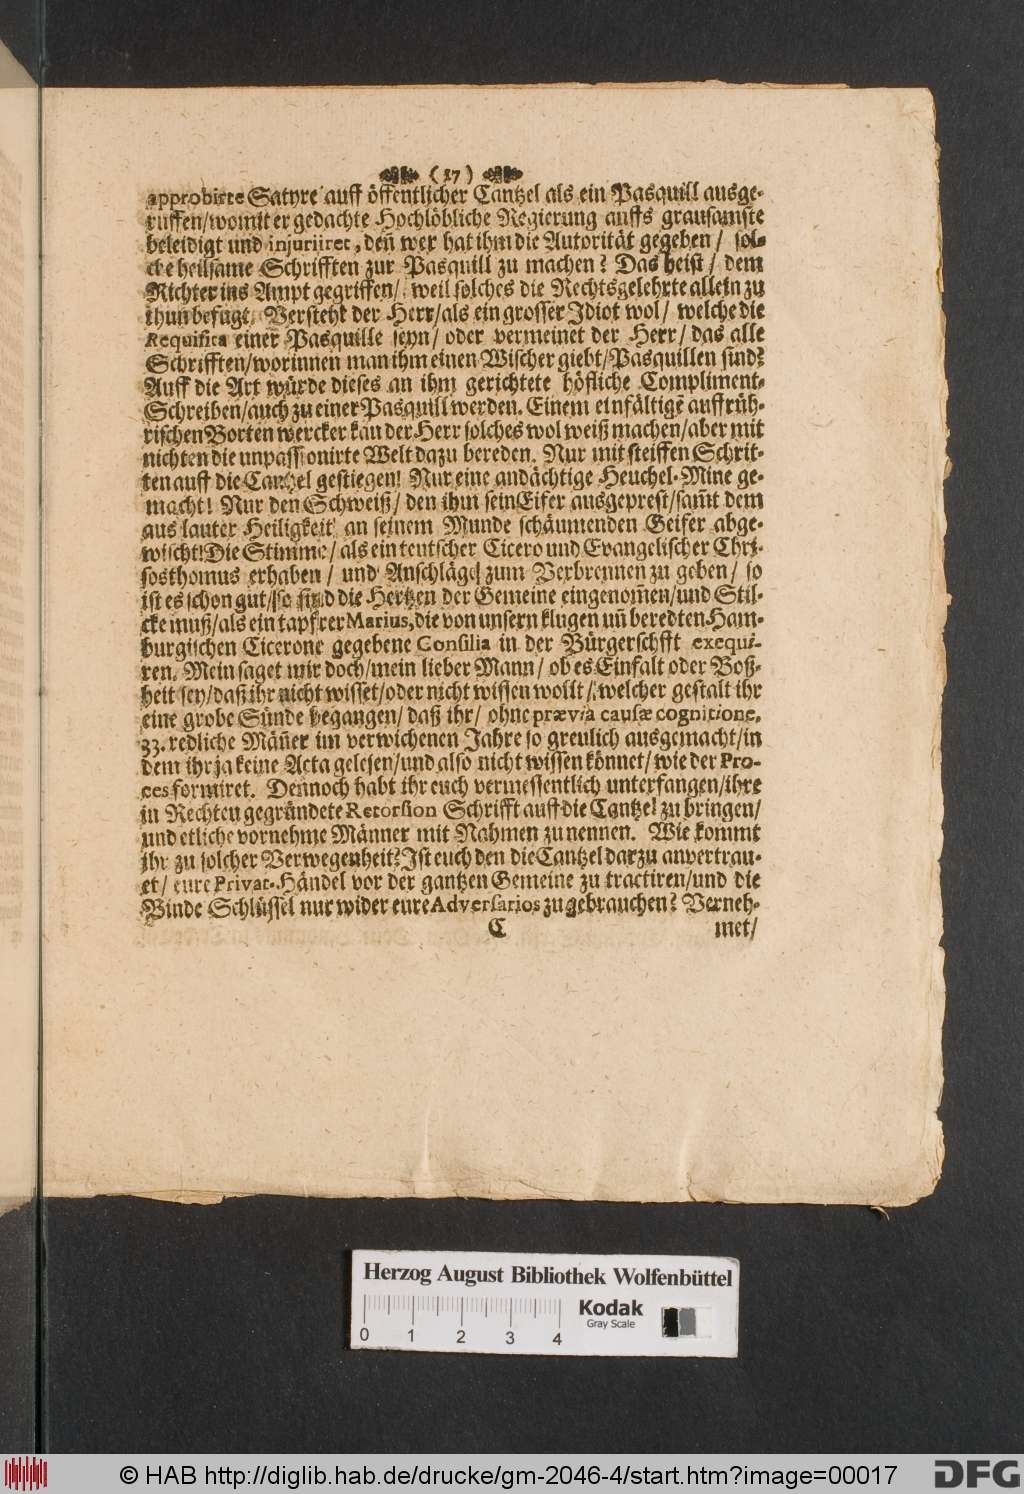 (17)
approbirte Satyre auff öffentlicher Cantzel als ein Pasquill ausge-
ruffen/womit er gedachte Hochlöbliche Regierung auffs grausamste
beleidigt und injuriiret, deñ wer hat ihm die Autorität gegeben/ sol-
che heilsame Schrifften zur Pasquill zu machen? Das heist/ dem
Richter ins Ampt gegriffen/ weil solches die Rechtsgelehrte allein zu
thun befugt. Versteht der Herr/als ein grosser Idiot wol/ welche die
Requisita einer Pasquille seyn/ oder vermeinet der Herr/ das alle
Schrifften/worinnen man ihm einen Wischer giebt/Pasquillen sind?
Auff die Art würde dieses an ihm gerichtete höfliche Compliment-
Schreiben/auch zu einer Pasquill werden. Einem einfältigẽ auffrüh-
rischen Borten wercker kan der Herr solches wol weiß machen/aber mit
nichten die unpassionirte Welt dazu bereden. Nur mit steiffen Schrit-
ten auff die Cantzel gestiegen! Nur eine andächtige Heuchel-Mine ge-
macht! Nur den Schweiß/ den ihm sein Eifer ausgeprest/sam̃t dem
aus lauter Heiligkeit an seinem Munde schäumenden Geifer abge-
wischt! Die Stimme/ als ein teutscher Cicero und Evangelischer Chri-
sosthomus erhaben/ und Anschläge zum Verbrennen zu geben/ so
ist es schon gut/ so sind die Hertzen der Gemeine eingenom̃en/und Stil-
cke muß/als ein tapfrer Marius, die von unsern klugen uñ beredten Ham-
burgischen Cicerone gegebene Consilia in der Bürgerschfft exequi-
ren. Mein saget mir doch/mein lieber Mann/ ob es Einfalt oder Boß-
heit sey/daß ihr nicht wisset/oder nicht wissen wollt/ welcher gestalt ihr
eine grobe Sünde begangen/ daß ihr/ ohne prævia causæ cognitione,
33. redliche Mäñer im verwichenen Jahre so greulich ausgemacht/in
dem ihr ja keine Acta gelesen/und also nicht wissen könnet/ wie der Pro-
ces formiret. Dennoch habt ihr euch vermessentlich unterfangen/ihre
in Rechten gegründete Retorsion Schrifft auff die Cantzel zu bringen/
und etliche vornehme Männer mit Nahmen zu nennen. Wie kommt
ihr zu solcher Verwegenheit? Ist euch den die Cantzel darzu anvertrau-
et/ eure Privat-Händel vor der gantzen Gemeine zu tractiren/und die
Binde Schlüssel nur wider eure Adversarios zu gebrauchen? Verneh-
C met/
Herzog August Bibliothek Wolfenbüttel
0 1 2 3 4
Kodak
Gray Scale
© HAB http://diglib.hab.de/drucke/gm-2046-4/start.htm?image=00017
DFG